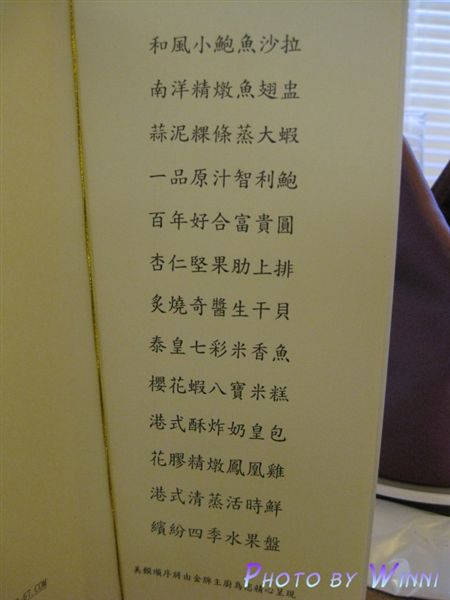 和風小鮑魚沙拉
南洋精燉魚翅盅
蒜泥粿條蒸大蝦
一品原汁智利鮑
百年好合富貴圓
杏仁堅果肋上排
炙燒奇醬生干貝
泰皇七彩米香魚
櫻花蝦八寶米糕
港式酥炸奶皇包
花膠精燉鳳凰雞
港式清蒸活時鮮
繽紛四季水果盤
美饌順序將由金牌主廚為您精心呈現
PHOTO BY WINNI